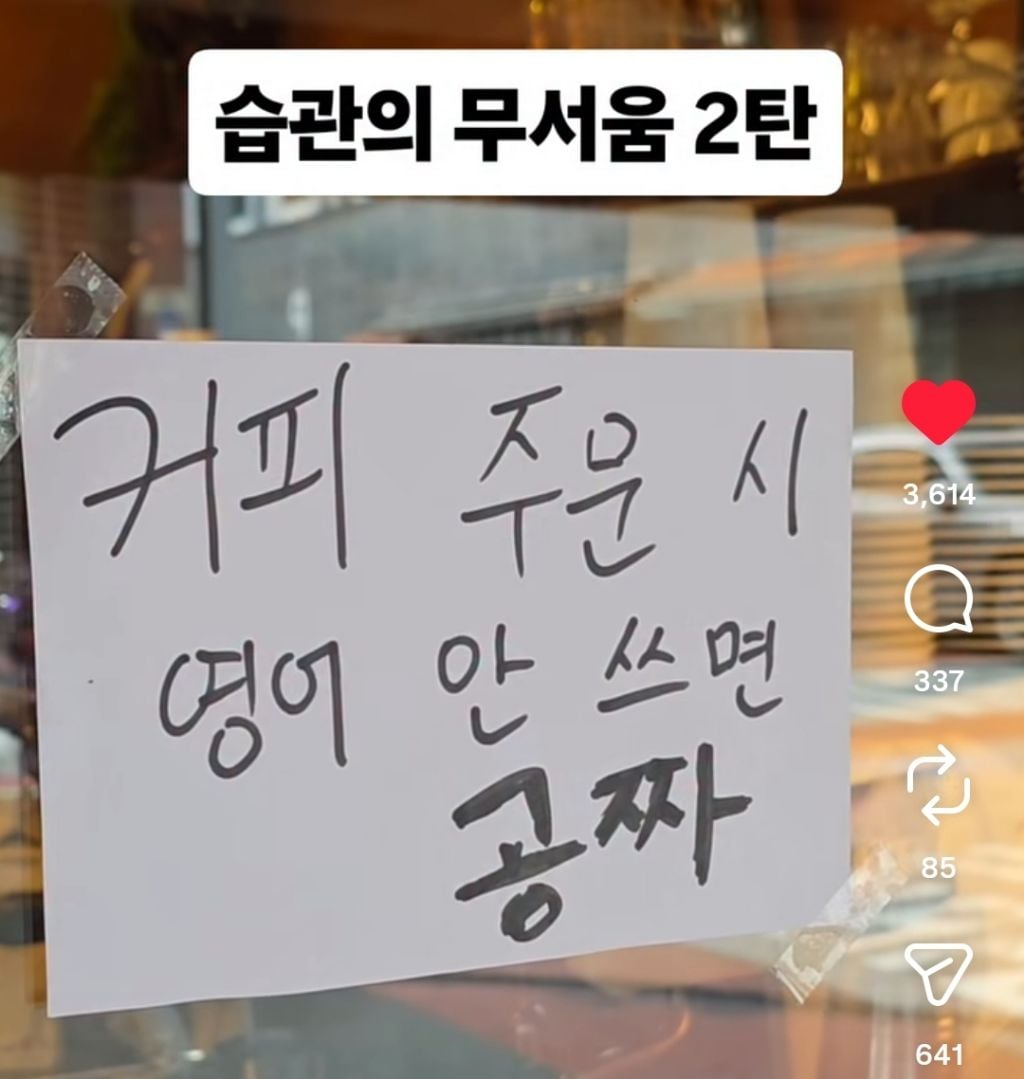 습관의 무서움 2탄
커피 주문 시
영어 안 쓰면
공짜
3,614
337
85
641